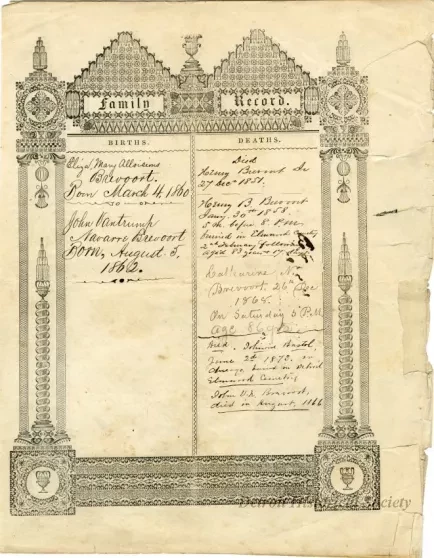 Family Record.
BIRTHS.
Eliza Mary Alloisius
Brevoort.
Born March 4, 1860
John Vantrump
Navarre Brevoort
Born, August 5,
1862.
DEATHS.
Died
Henry Brevoort Sr
27 Dec 1851.
Henry B. Brevoort
Jany. 30th 1858.
5 m. before 8 P.M.
buried in Elmwood
2nd February
aged 83 years
Catharine N.
Brevoort 26th Dec
1868.
On Saturday 5 P.M.
age 86
Died
June 2d 1873.
buried in Detroit
Elmwood Cemetery
John V. Brevoort,
died in August, 1866
Detroit Historical Society